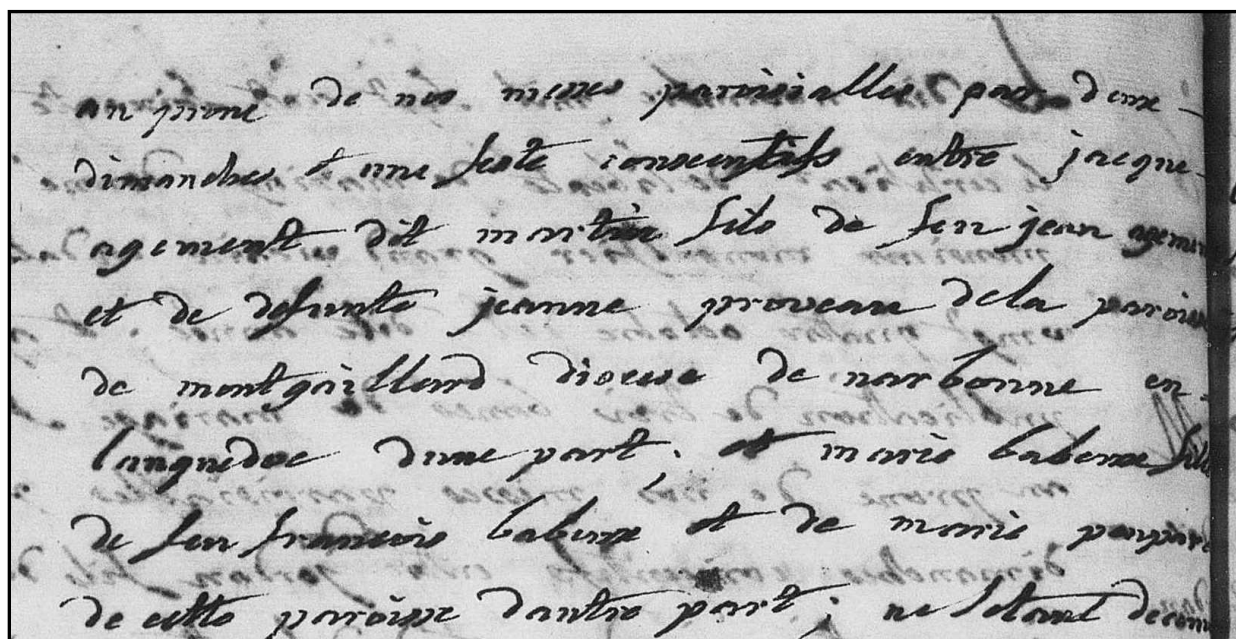 au prone de nos messes paroisialles par deux
dimanches et une feste consecutifs entre jacque
agement dit martin fils de feu jean agement
et de defunte jeanne proveau de la paroisse
de montgaillard diocese de narbonne en
languedoc dune part. et marie babeux fille
de feu francois babeux et de marie
de cette paroisse dautre part; ne